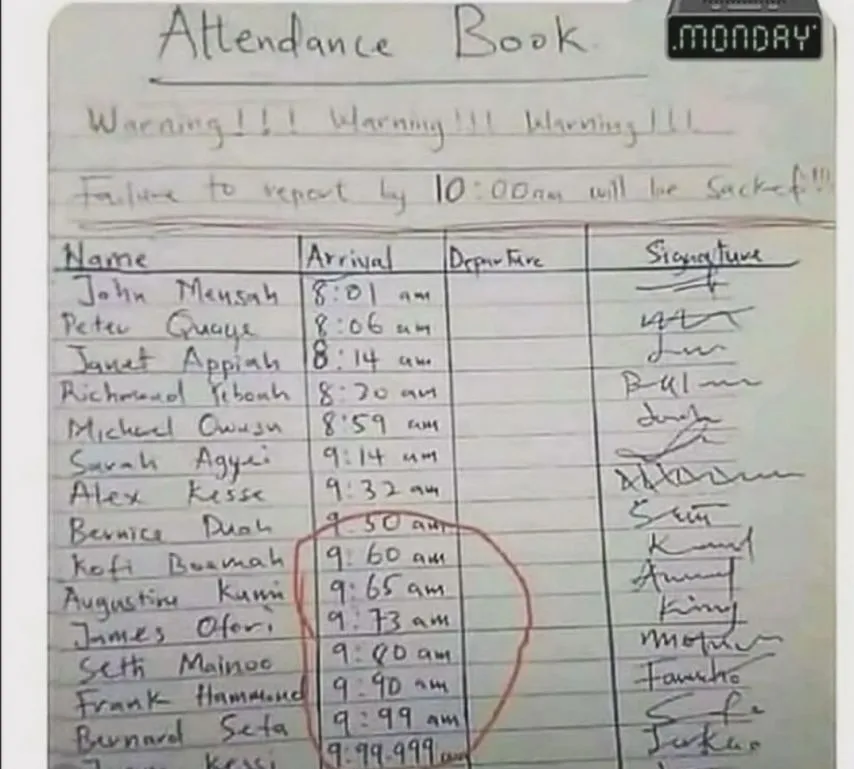 Attendance Book
.MONDAY
Warning!!! Warning!!! Warning!!!
Failure to report by 10:00am will be Sacked!!!
Name Arrival Departure Signature
John Mensah 8:01 am
Peter Quaye 8:06 am
Janet Appiah 8:14 am
Richmond Yeboah 8:20 am
Michael Owusu 8:59 am
Sarah Agyei 9:14 am
Alex Kesse 9:32 am
Bernice Duah 9:50 am
Kofi Boamah 9:60 am
Augustine Kumi 9:65 am
James Ofori 9:73 am King
Seth Mainoo 9:80 am
Frank Hammond 9:90 am
Bernard Sefa 9:99 am
Kessi 9:99.999 am